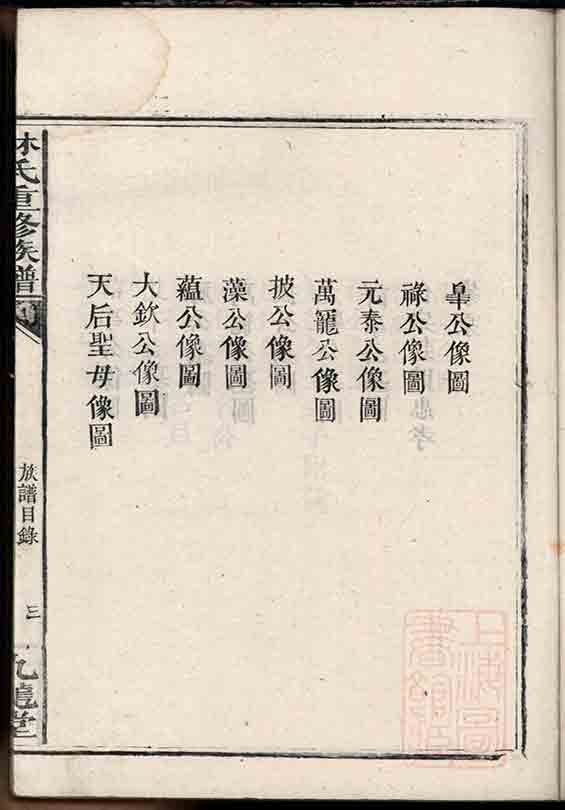 皐公像圖
祿公像圖
元泰公像圖
萬寵公像圖
披公像圖
藻公像圖
蘊公像圖
大欽公像圖
天后聖母像圖
林氏重修族譜
族譜目錄
三
九龍堂
上海圖書館藏